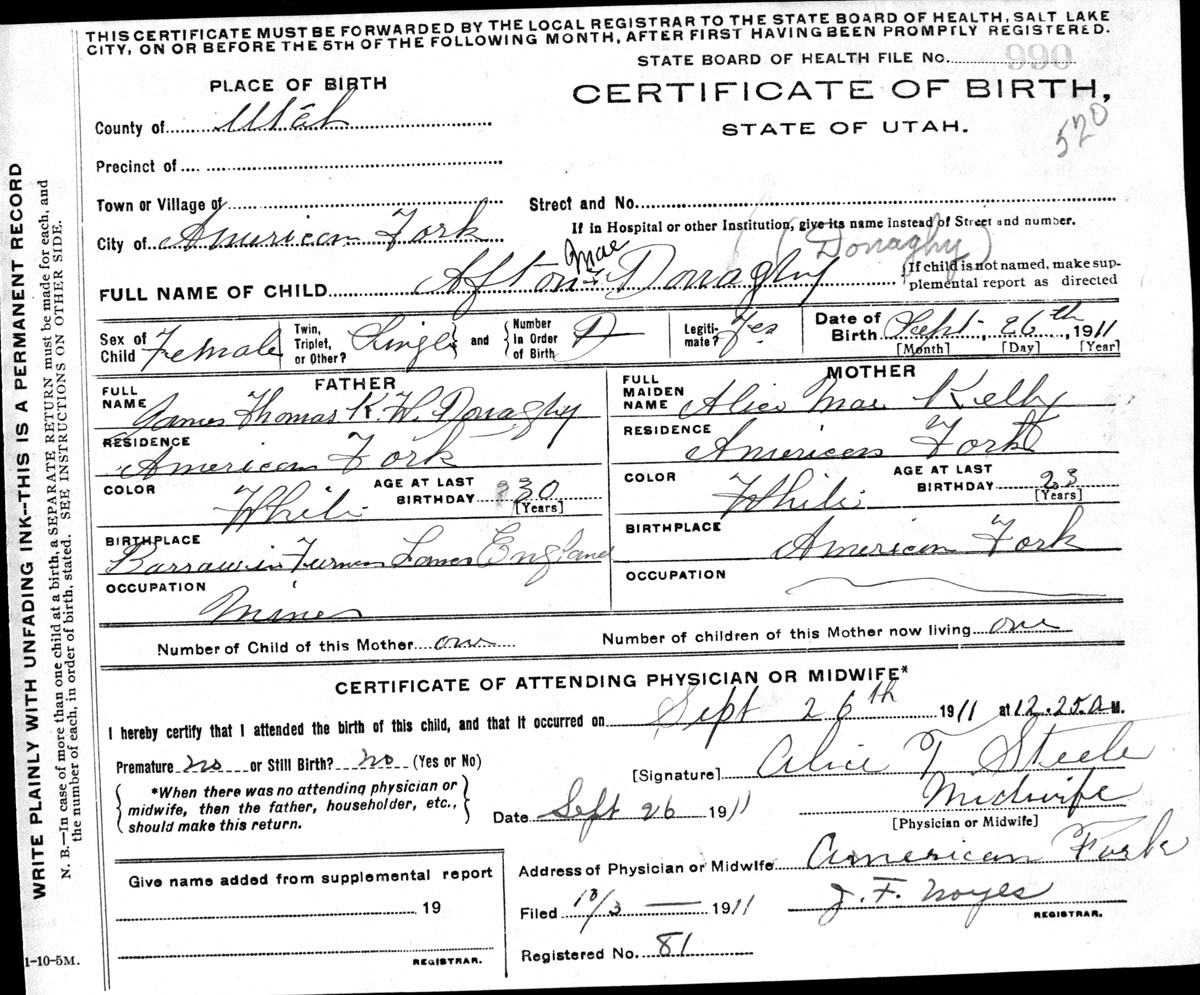 THIS CERTIFICATE MUST BE FORWARDED BY THE LOCAL REGISTRAR TO THE STATE BOARD OF HEALTH, SALT LAKE
CITY, ON OR BEFORE THE 5TH OF THE FOLLOWING MONTH, AFTER FIRST HAVING BEEN PROMPTLY REGISTERED.
STATE BOARD OF HEALTH FILE No. 990
PLACE OF BIRTH
CERTIFICATE OF BIRTH,
County of Utah
STATE OF UTAH.
520
Precinct of
Town or Village of
Street and No.
If in Hospital or other Institution, give its name instead of Street and number.
City of American Fork
(Donaghy)
Mae
FULL NAME OF CHILD Afton Donaghy
{If child is not named, make sup-
plemental report as directed
Sex of Child Female
Twin, Triplet, or Other? Single
and
Number in Order of Birth
Legiti-mate? Yes
Date of Birth Sept. 26th, 1911
[Month] [Day] [Year]
FATHER
FULL NAME James Thomas K. W. Donaghy
RESIDENCE American Fork
COLOR White
AGE AT LAST BIRTHDAY 30
[Years]
BIRTHPLACE Barrow in Furness Lancs England
OCCUPATION Miner
MOTHER
FULL MAIDEN NAME Alice Mae Kelly
RESIDENCE American Fork
COLOR White
AGE AT LAST BIRTHDAY 23
[Years]
BIRTHPLACE American Fork
OCCUPATION
Number of Child of this Mother one
Number of children of this Mother now living one
CERTIFICATE OF ATTENDING PHYSICIAN OR MIDWIFE*
I hereby certify that I attended the birth of this child, and that it occurred on Sept 26th 1911 at 12.25 a M.
Premature no or Still Birth? no (Yes or No)
[Signature] Alice T Steele
{*When there was no attending physician or
midwife, then the father, householder, etc.,
should make this return.}
Date Sept 26 1911
Midwife
[Physician or Midwife]
Address of Physician or Midwife American Fork
Give name added from supplemental report
19
REGISTRAR.
Filed 10/3 1911
J. F. Noyes
REGISTRAR.
Registered No. 81
1-10-5M.
WRITE PLAINLY WITH UNFADING INK--THIS IS A PERMANENT RECORD
N. B.—In case of more than one child at a birth, a SEPARATE RETURN must be made for each, and
the number of each, in order of birth, stated. SEE INSTRUCTIONS ON OTHER SIDE.